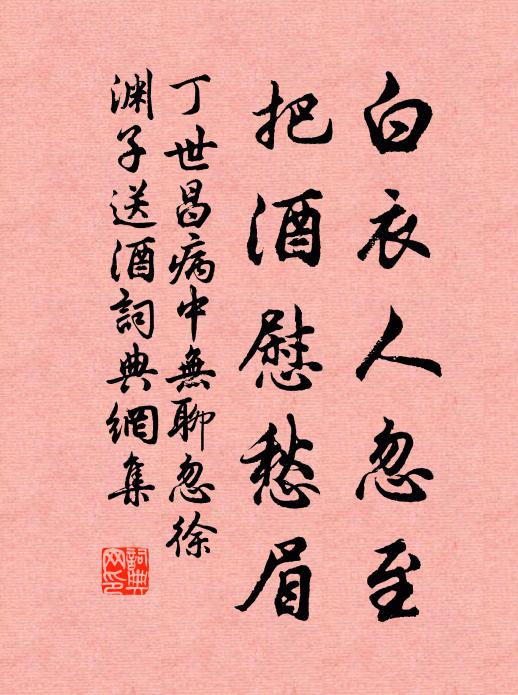 白衣人忽至
把酒慰愁眉
丁世昌病中無聊忽徐
渊子送酒詞典網集
詞典
网印